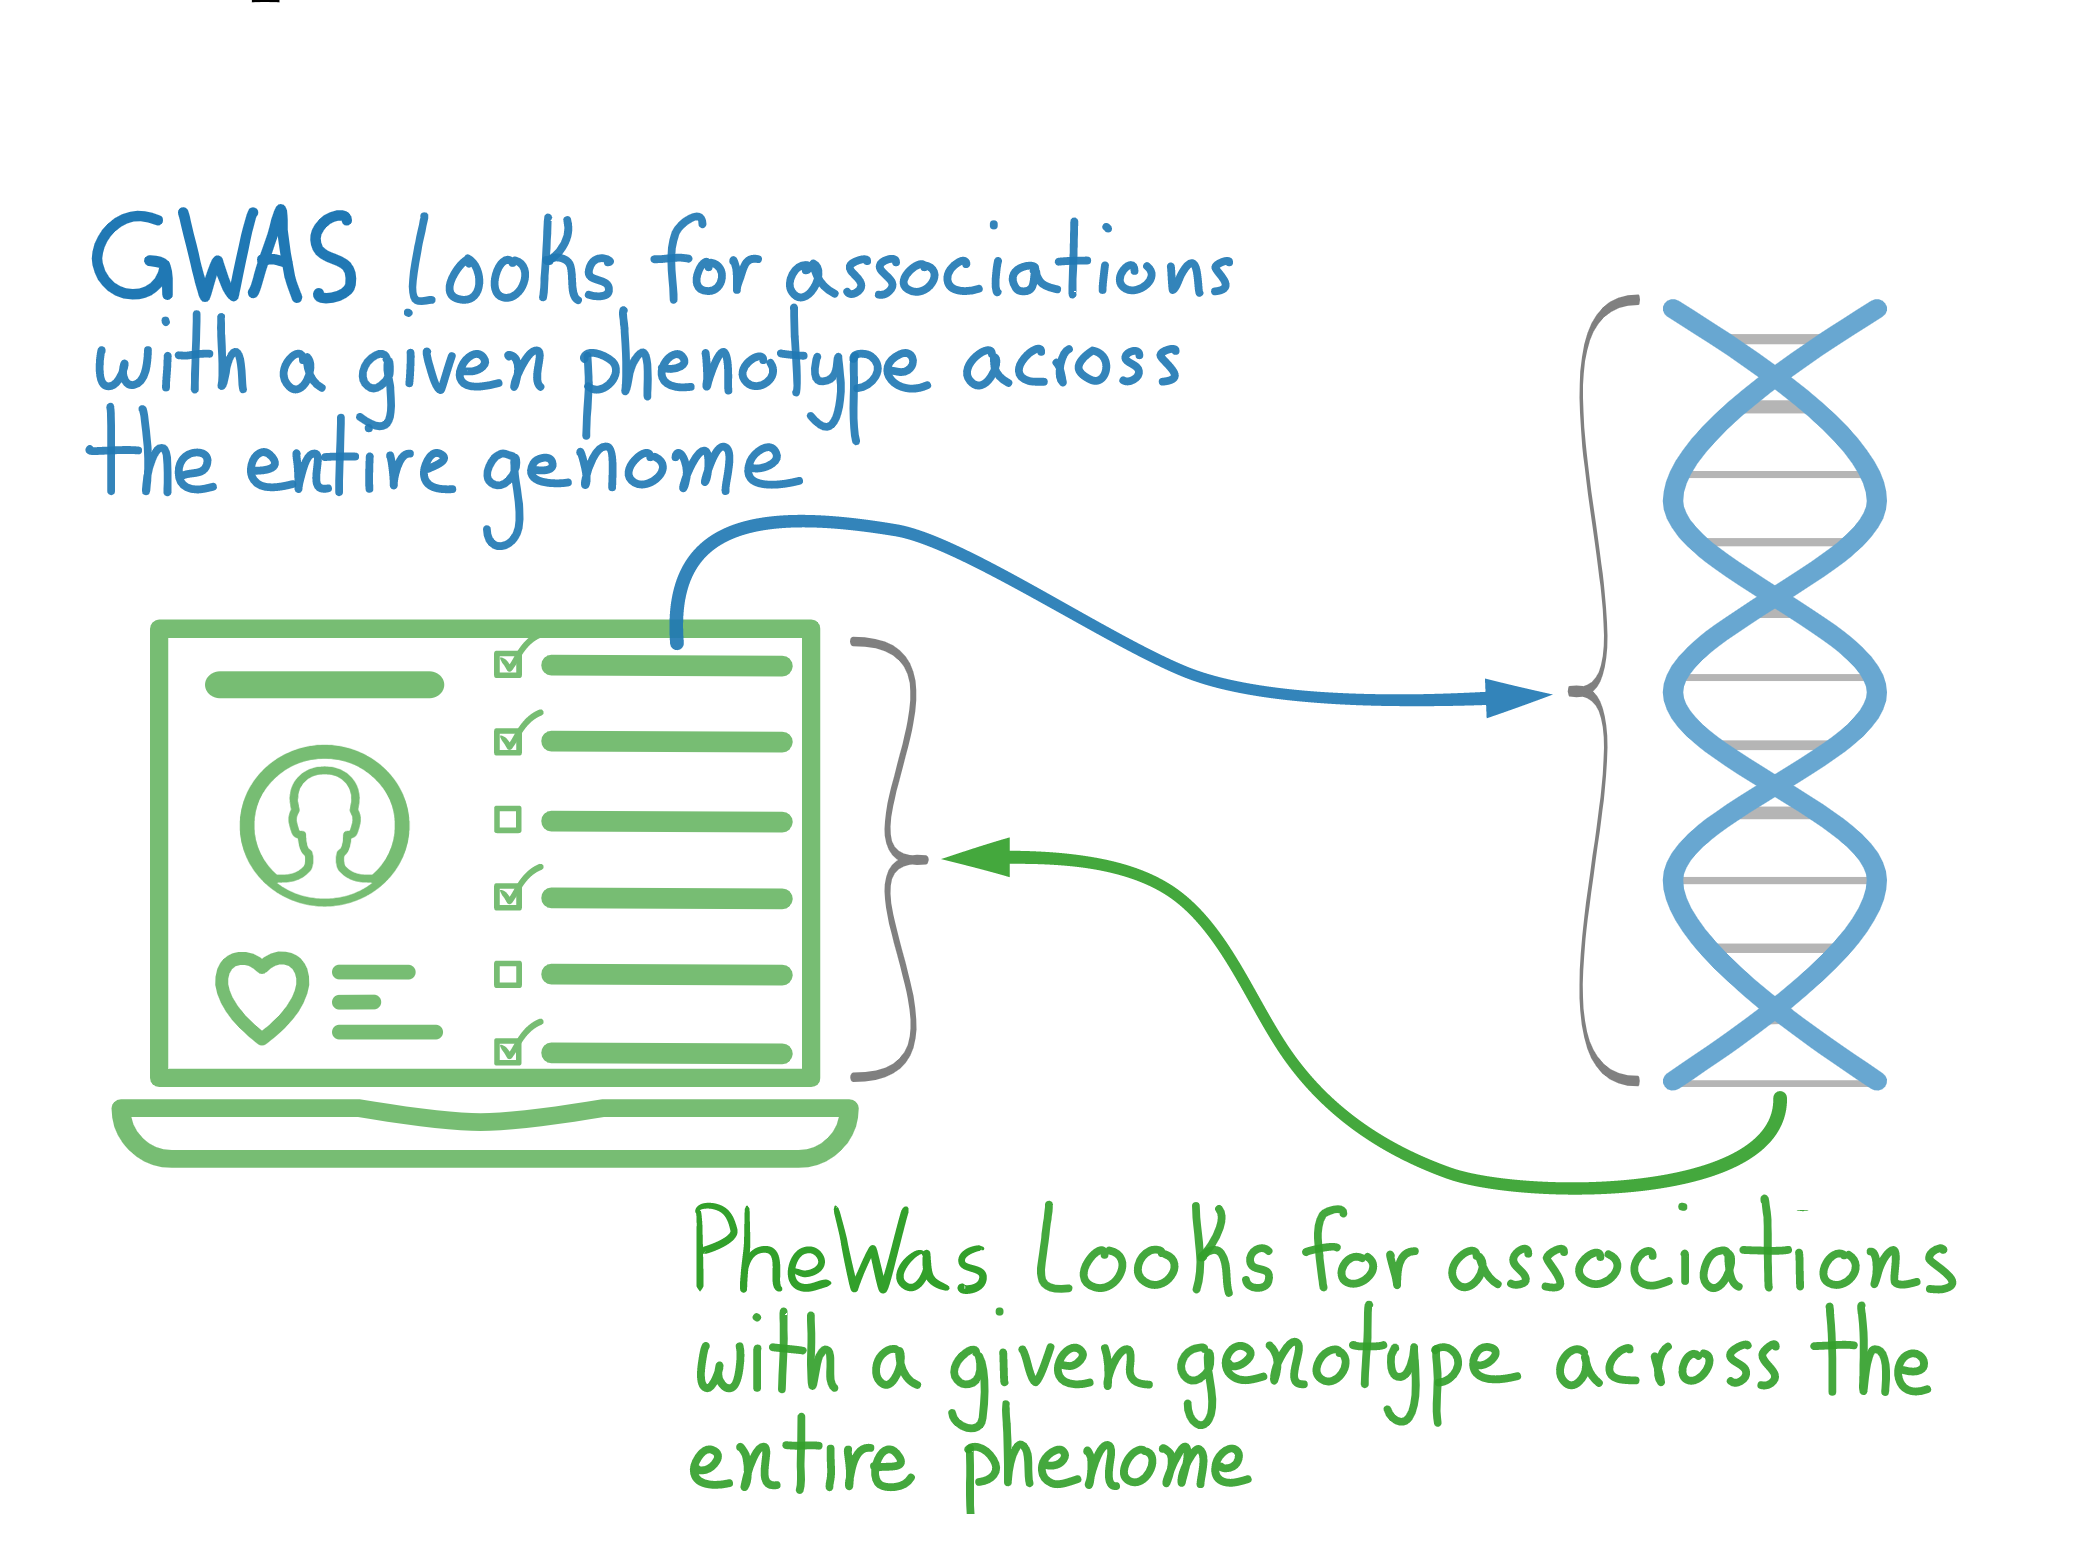 GWAS Looks for associations
with a given phenotype across
the entire genome
PheWas Looks for associations
with a given genotype across the
entire phenome